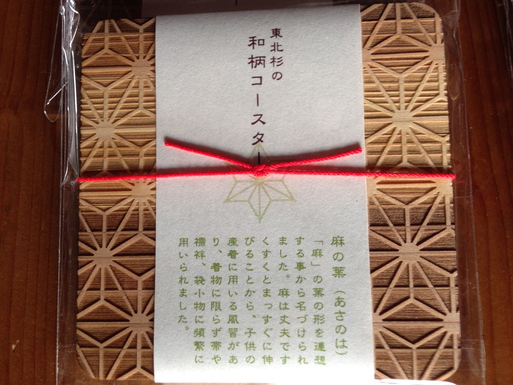 東北杉の
和柄コースター
麻の葉（あさのは）
「麻」の葉の形を連想
する事から名づけられ
ました。麻は丈夫です
くすくとまっすぐに伸
びることから、子供の
産着に用いる風習があ
り、着物に限らず帯や
襦袢、袋小物に頻繁に
用いられました。